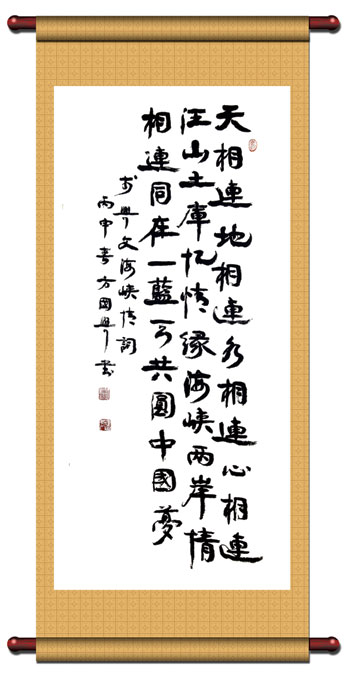 天相連地相連水相連心相連
汪山土庫忆情缘海峡两岸情
相連同在一藍天共圓中國夢
興文海峡情詞
丙申春方国興書